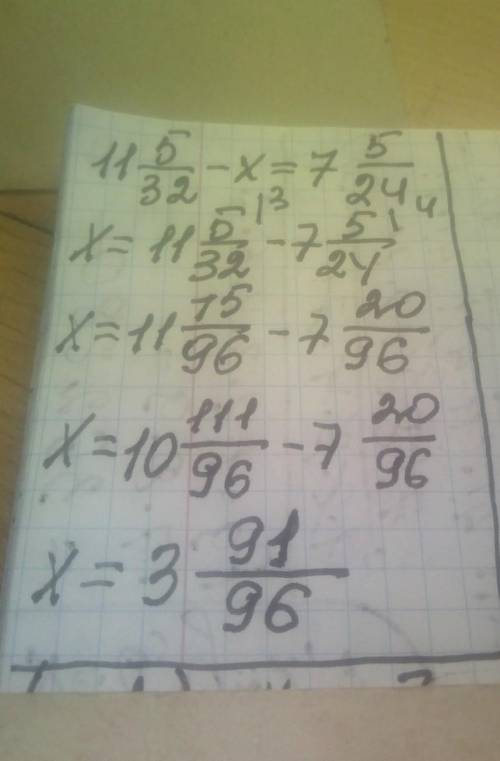 11 5/32 - x = 7 5/24
x = 11 5/32 |3 - 7 5/24 |4
x = 11 15/96 - 7 20/96
x = 10 111/96 - 7 20/96
x = 3 91/96